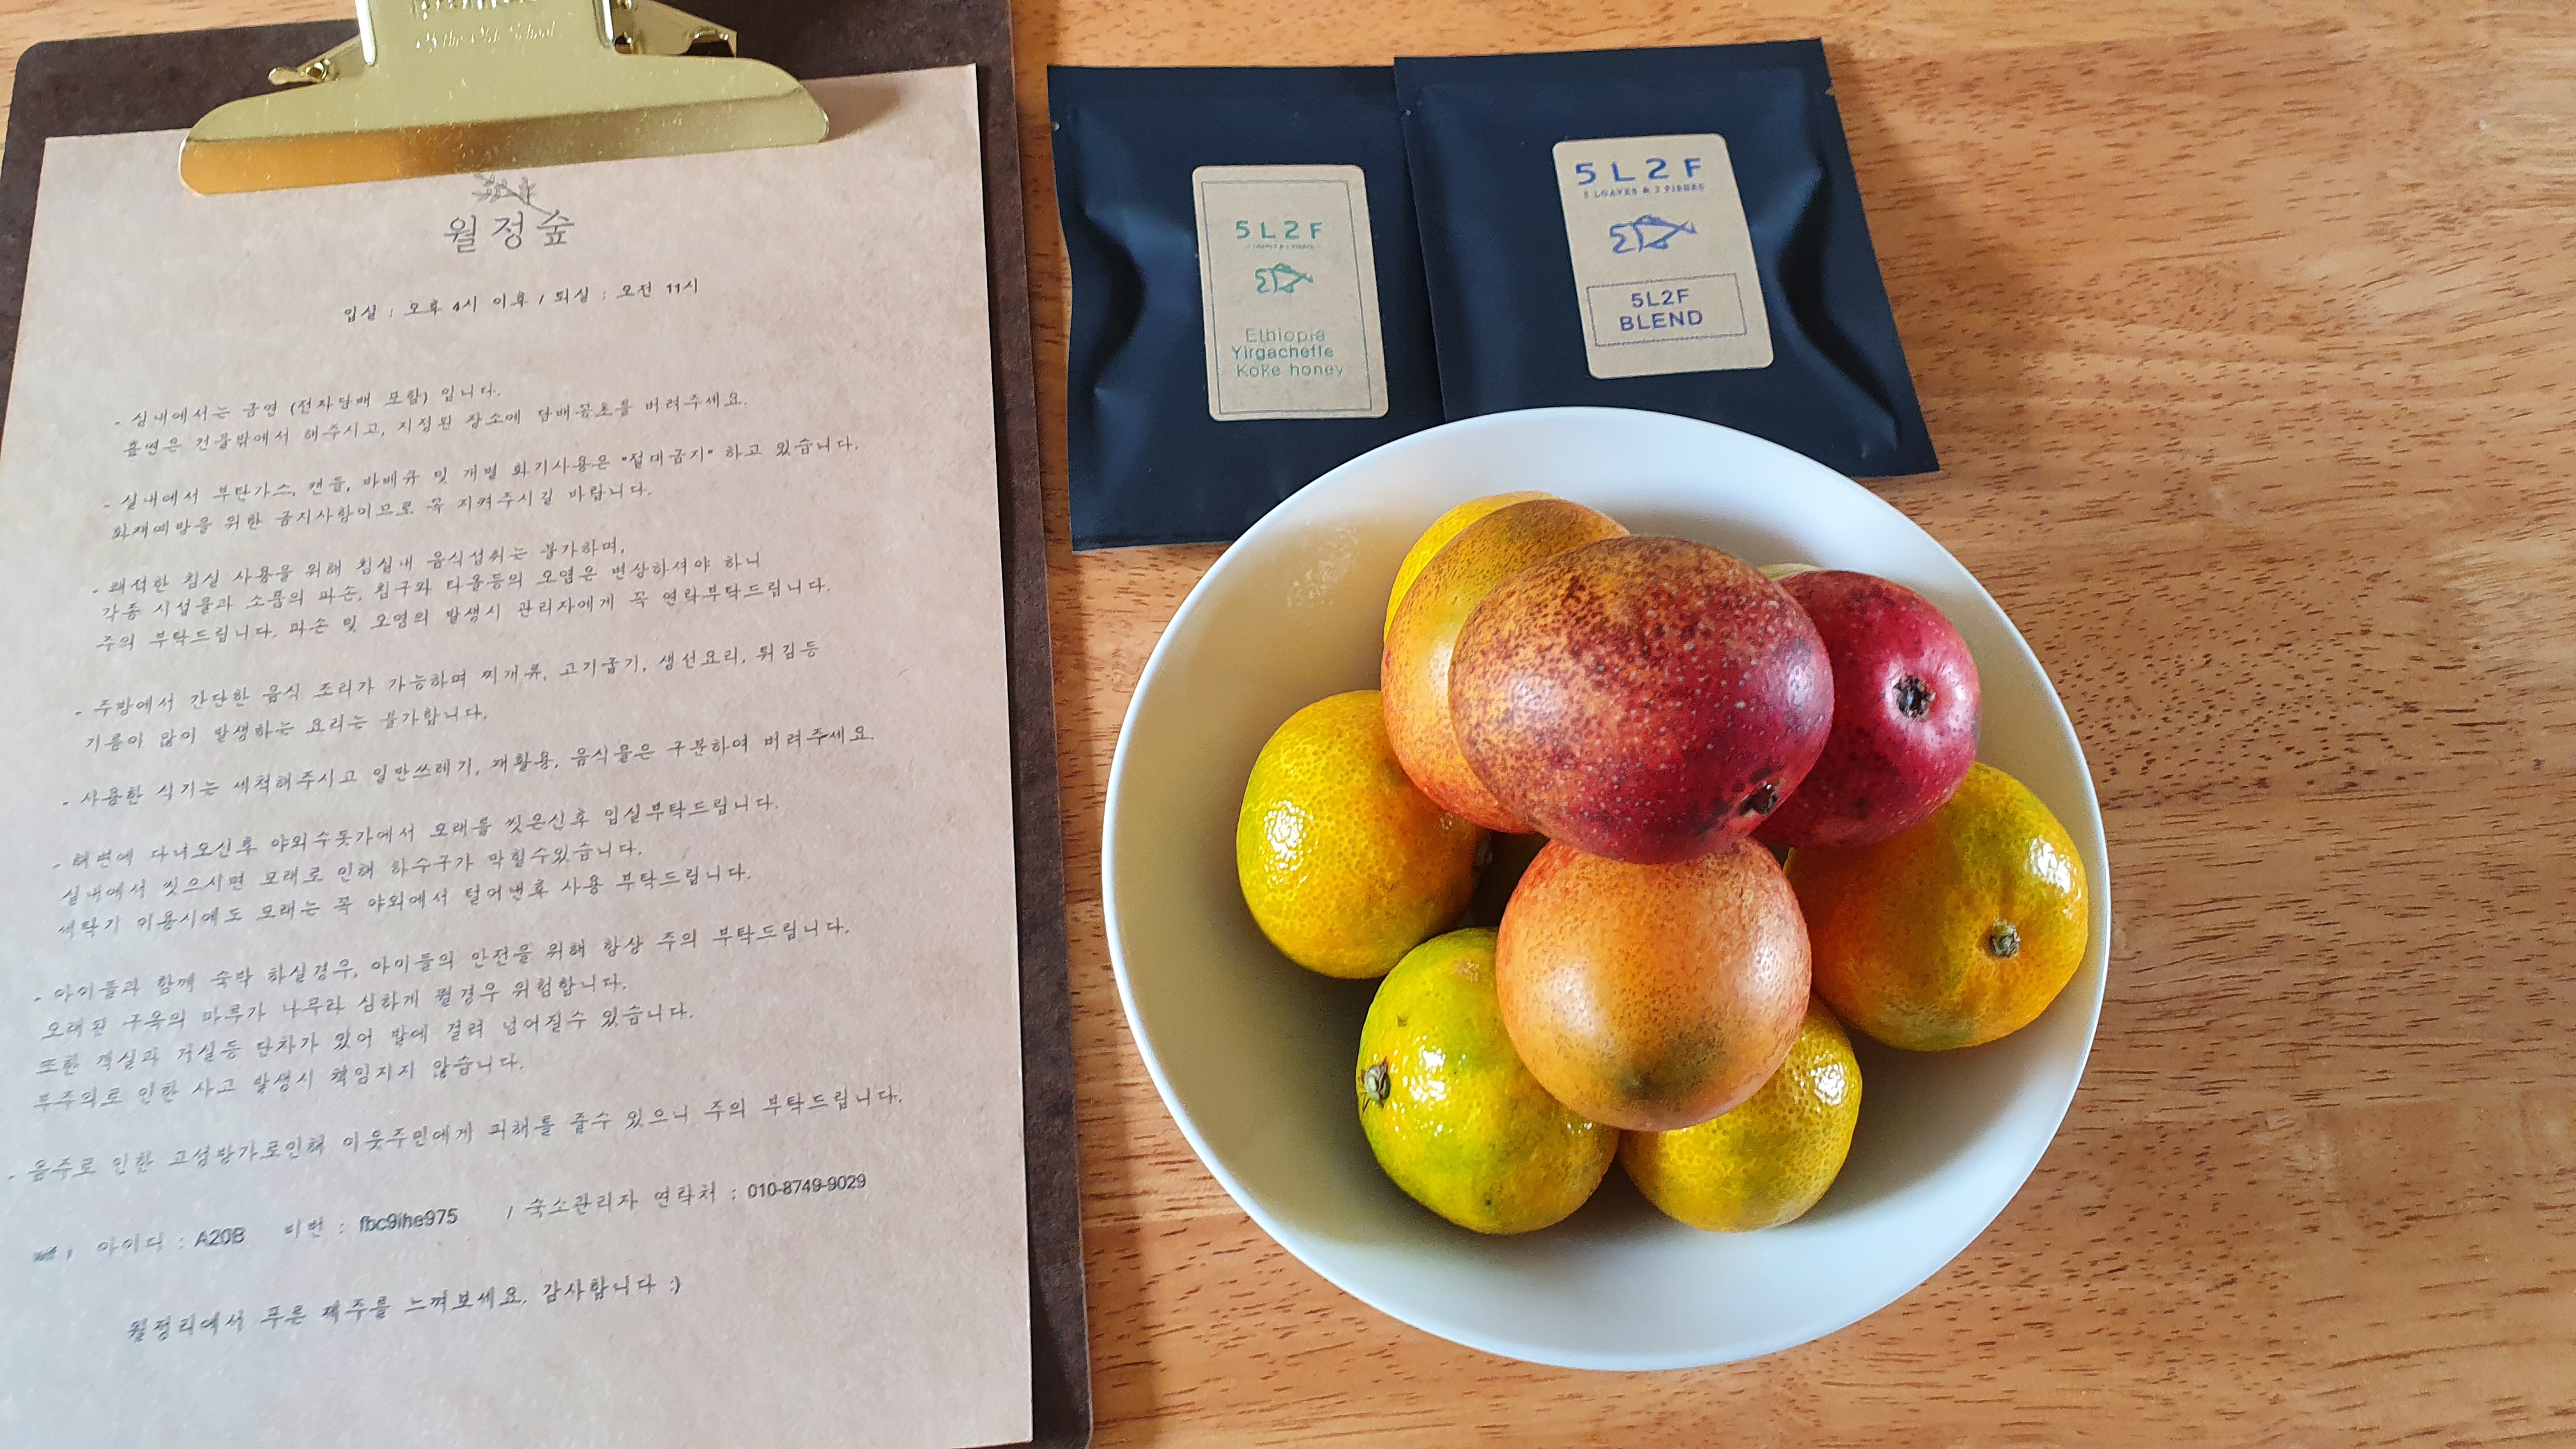 of the Old School
월정숲
입실 : 오후 4시 이후 / 퇴실 : 오전 11시
- 실내에서는 금연 (전자담배 포함) 입니다.
흡연은 건물밖에서 해주시고, 지정된 장소에 담배꽁초를 버려주세요.
- 실내에서 부탄가스, 캔들, 바베큐 및 개별 화기사용은 "절대금지" 하고 있습니다.
화재예방을 위한 금지사항이므로 꼭 지켜주시길 바랍니다.
- 쾌적한 침실 사용을 위해 침실내 음식섭취는 불가하며,
각종 시설물과 소품의 파손, 침구와 타올등의 오염은 변상하셔야 하니
주의 부탁드립니다. 파손 및 오염의 발생시 관리자에게 꼭 연락부탁드립니다.
- 주방에서 간단한 음식 조리가 가능하며 찌개류, 고기굽기, 생선요리, 튀김등
기름이 많이 발생하는 요리는 불가합니다.
- 사용한 식기는 세척해주시고 일반쓰레기, 재활용, 음식물은 구분하여 버려주세요.
- 해변에 다녀오신후 야외수돗가에서 모래를 씻은신후 입실부탁드립니다.
실내에서 씻으시면 모래로 인해 하수구가 막힐수있습니다.
세탁기 이용시에도 모래는 꼭 야외에서 털어낸후 사용 부탁드립니다.
- 아이들과 함께 숙박 하실경우, 아이들의 안전을 위해 항상 주의 부탁드립니다.
오래된 구옥의 마루가 나무라 심하게 뛸경우 위험합니다.
또한 객실과 거실등 단차가 있어 발에 걸려 넘어질수 있습니다.
부주의로 인한 사고 발생시 책임지지 않습니다.
- 음주로 인한 고성방가로인해 이웃주민에게 피해를 줄수 있으니 주의 부탁드립니다.
wifi ; 아이디 : A20B 비번 : fbc9ihe975 / 숙소관리자 연락처 : 010-8749-9029
월정리에서 푸른 제주를 느껴보세요. 감사합니다 :)
5L2F
Ethiopia
Yirgacheffe
Koke honey
5L2F
5 LOAVES & 2 FISHES
5L2F
BLEND